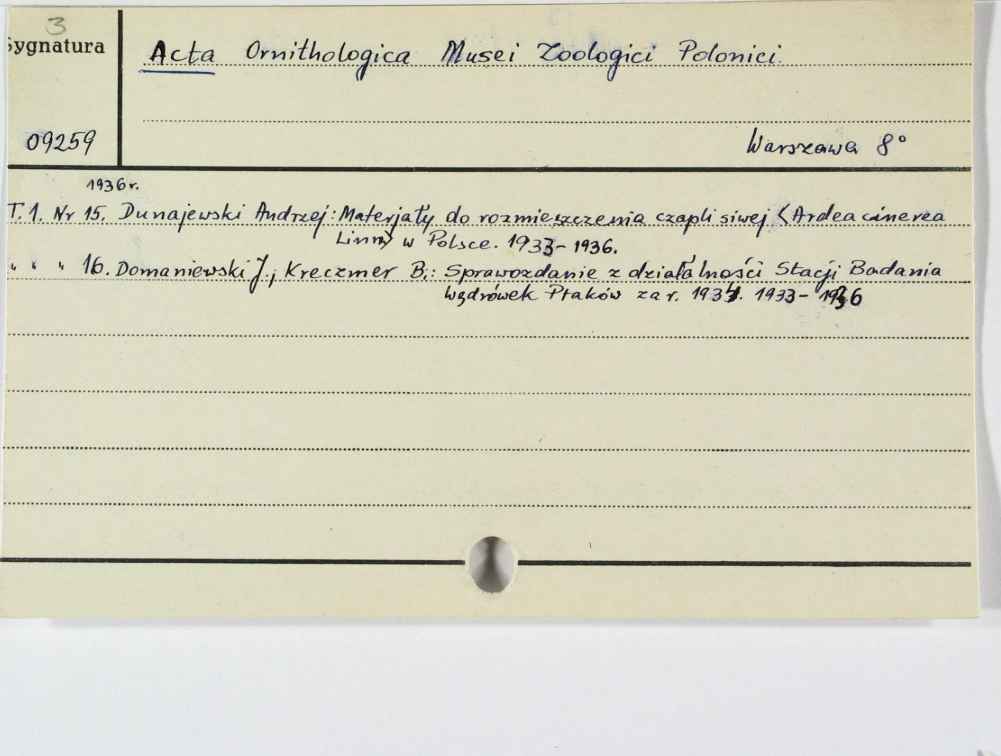 3
Sygnatura
Acta Ornithologica Musei Zoologici Polonici.
09259
Warszawa 8°
1936 r.
T.1. Nr 15. Dunajewski Andrzej: Materjały do rozmieszczenia czapli siwej <Ardea cinerea
Linn> w Polsce. 1933-1936.
" " " 16. Domaniewski J., Kreczmer B.: Sprawozdanie z działalności Stacji Badania
Wędrówek Ptaków za r. 1934. 1933-1936